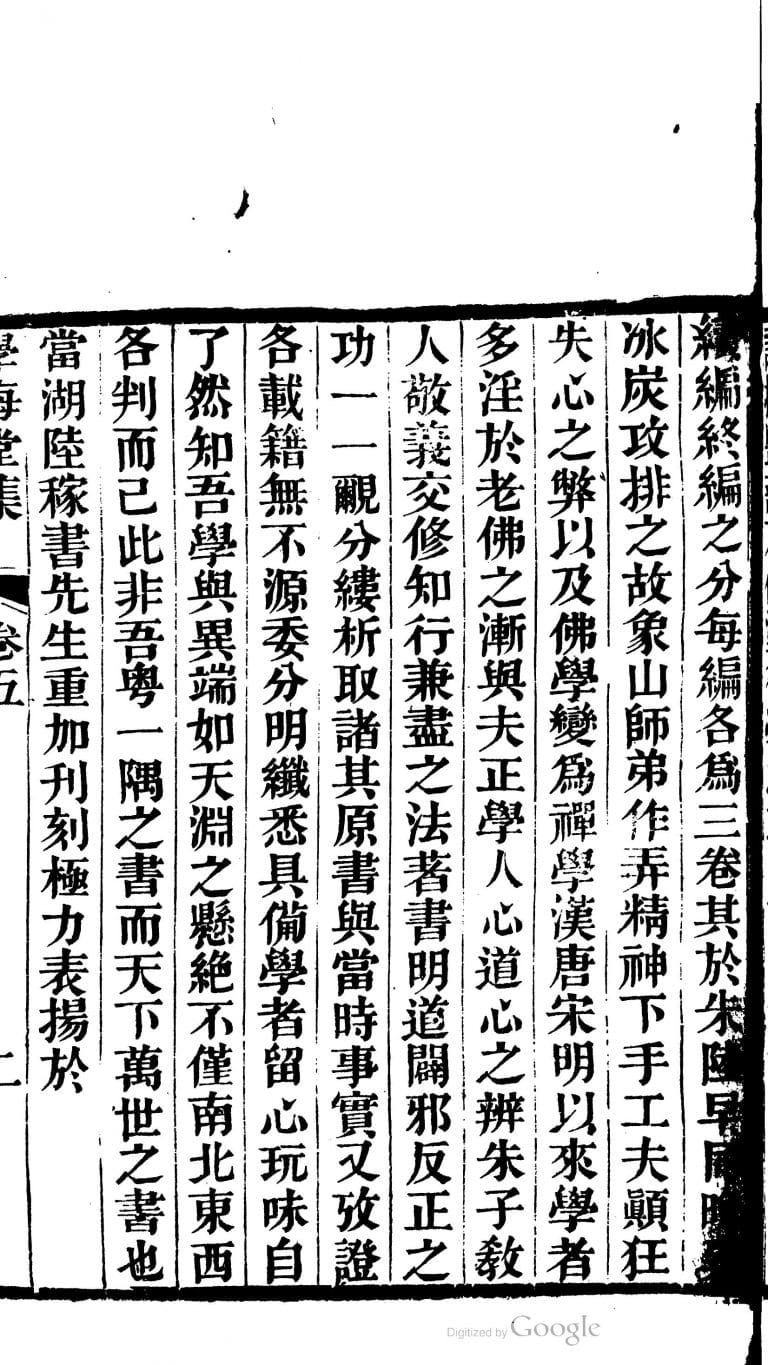 續編終編之分每編各爲三卷其於朱陸早同晚
冰炭攻排之故象山師弟作弄精神下手工夫顚狂
失心之弊以及佛學變爲禪學漢唐宋明以來學者
多淫於老佛之漸與夫正學人心道心之辨朱子敎
人敬義交修知行兼盡之法著書明道闢邪反正之
功一一覼分縷析取諸其原書與當時事實又攷證
各載籍無不源委分明纖悉具備學者留心玩味自
了然知吾學與異端如天淵之懸絕不僅南北東西
各判而已此非吾粤一隅之書而天下萬世之書也
當湖陸稼書先生重加刊刻極力表揚於
學海堂集 卷五 二
Digitized by Google